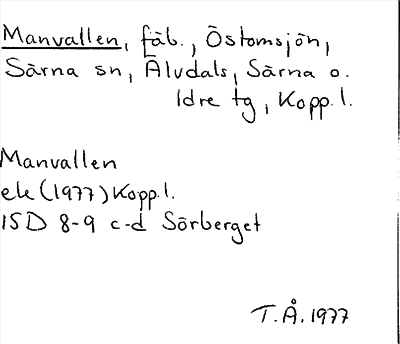 Manvallen, fäb., Östomsjön,
Särna sn, Älvdals, Särna o.
Idre tg, Kopp.l.
Manvallen
ek (1977) Kopp.l.
15D 8-9 c-d Sörberget
T.Å. 1977